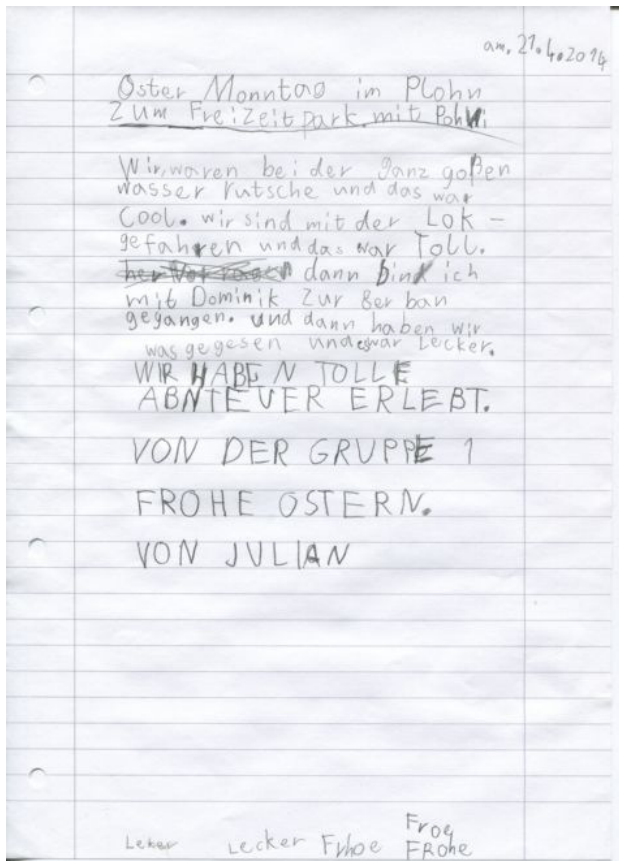 am. 21.4.2014
Oster Monntag im Plohn
Zum Freizeitpark mit Pohni
Wir waren bei der ganz goßen
wasser rutsche und das war
Cool. wir sind mit der Lok -
gefahren und das war Toll.
dann bin ich
mit Dominik Zur 8er ban
gegangen. und dann haben wir
was gegesen und es war Lecker.
WIR HABEN TOLLE
ABNTEUER ERLEBT.
VON DER GRUPPE 1
FROHE OSTERN.
VON JULIAN
Froe
Leker Lecker Frhoe FRohe